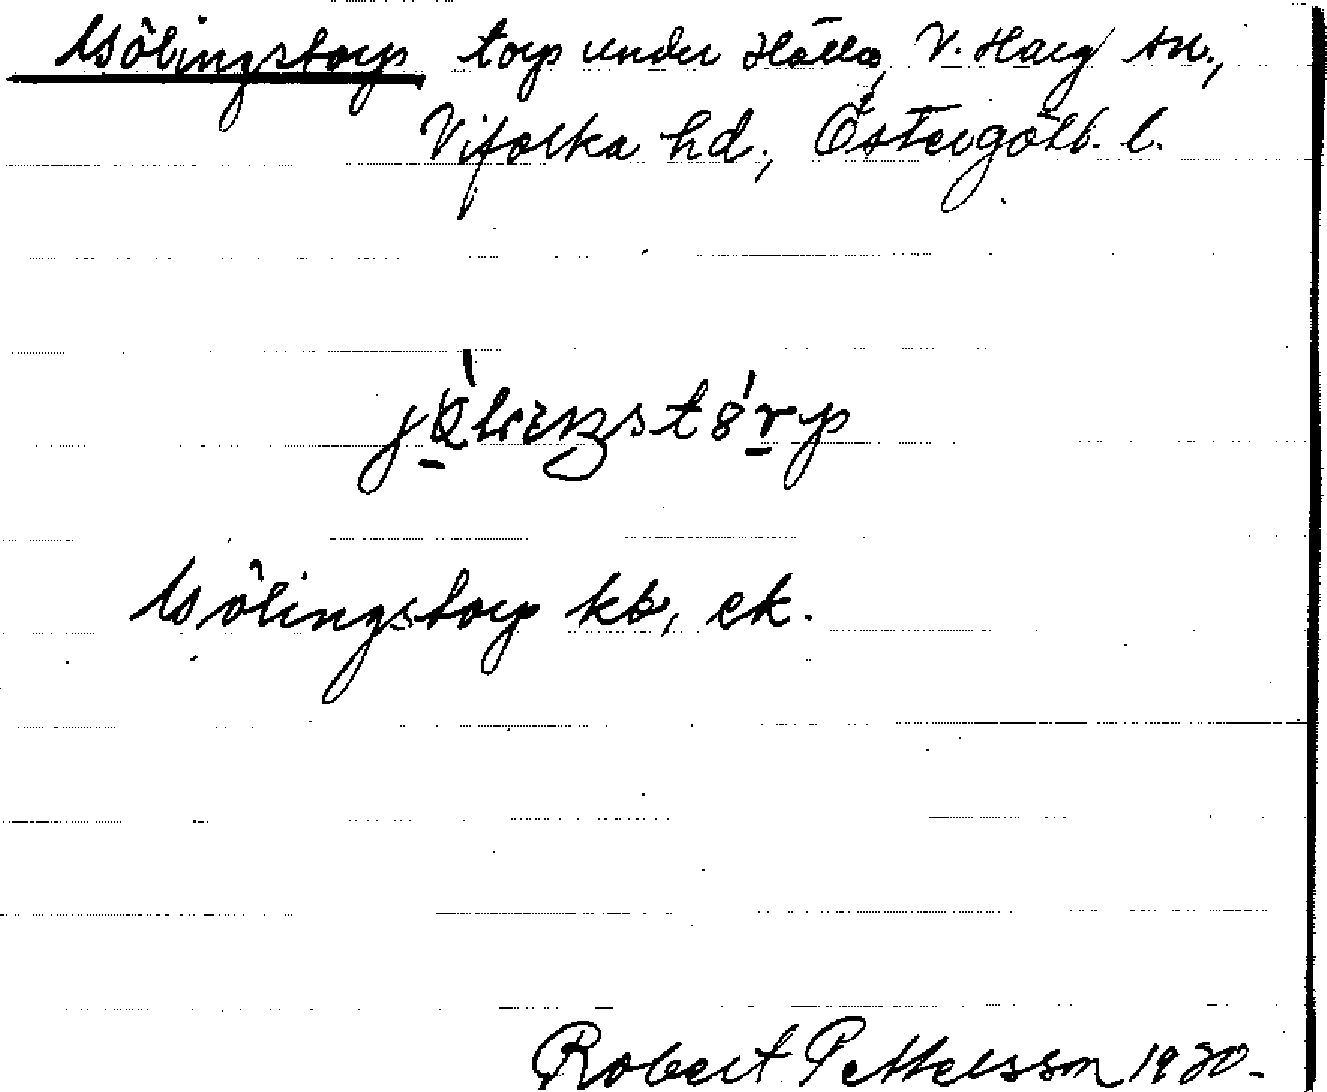 Gölingstorp torp under V. Harg sn.,
Vifolka hd., Östergötl. l.
Gölingstorp kb, ek.
Robert Pettersson 1930.